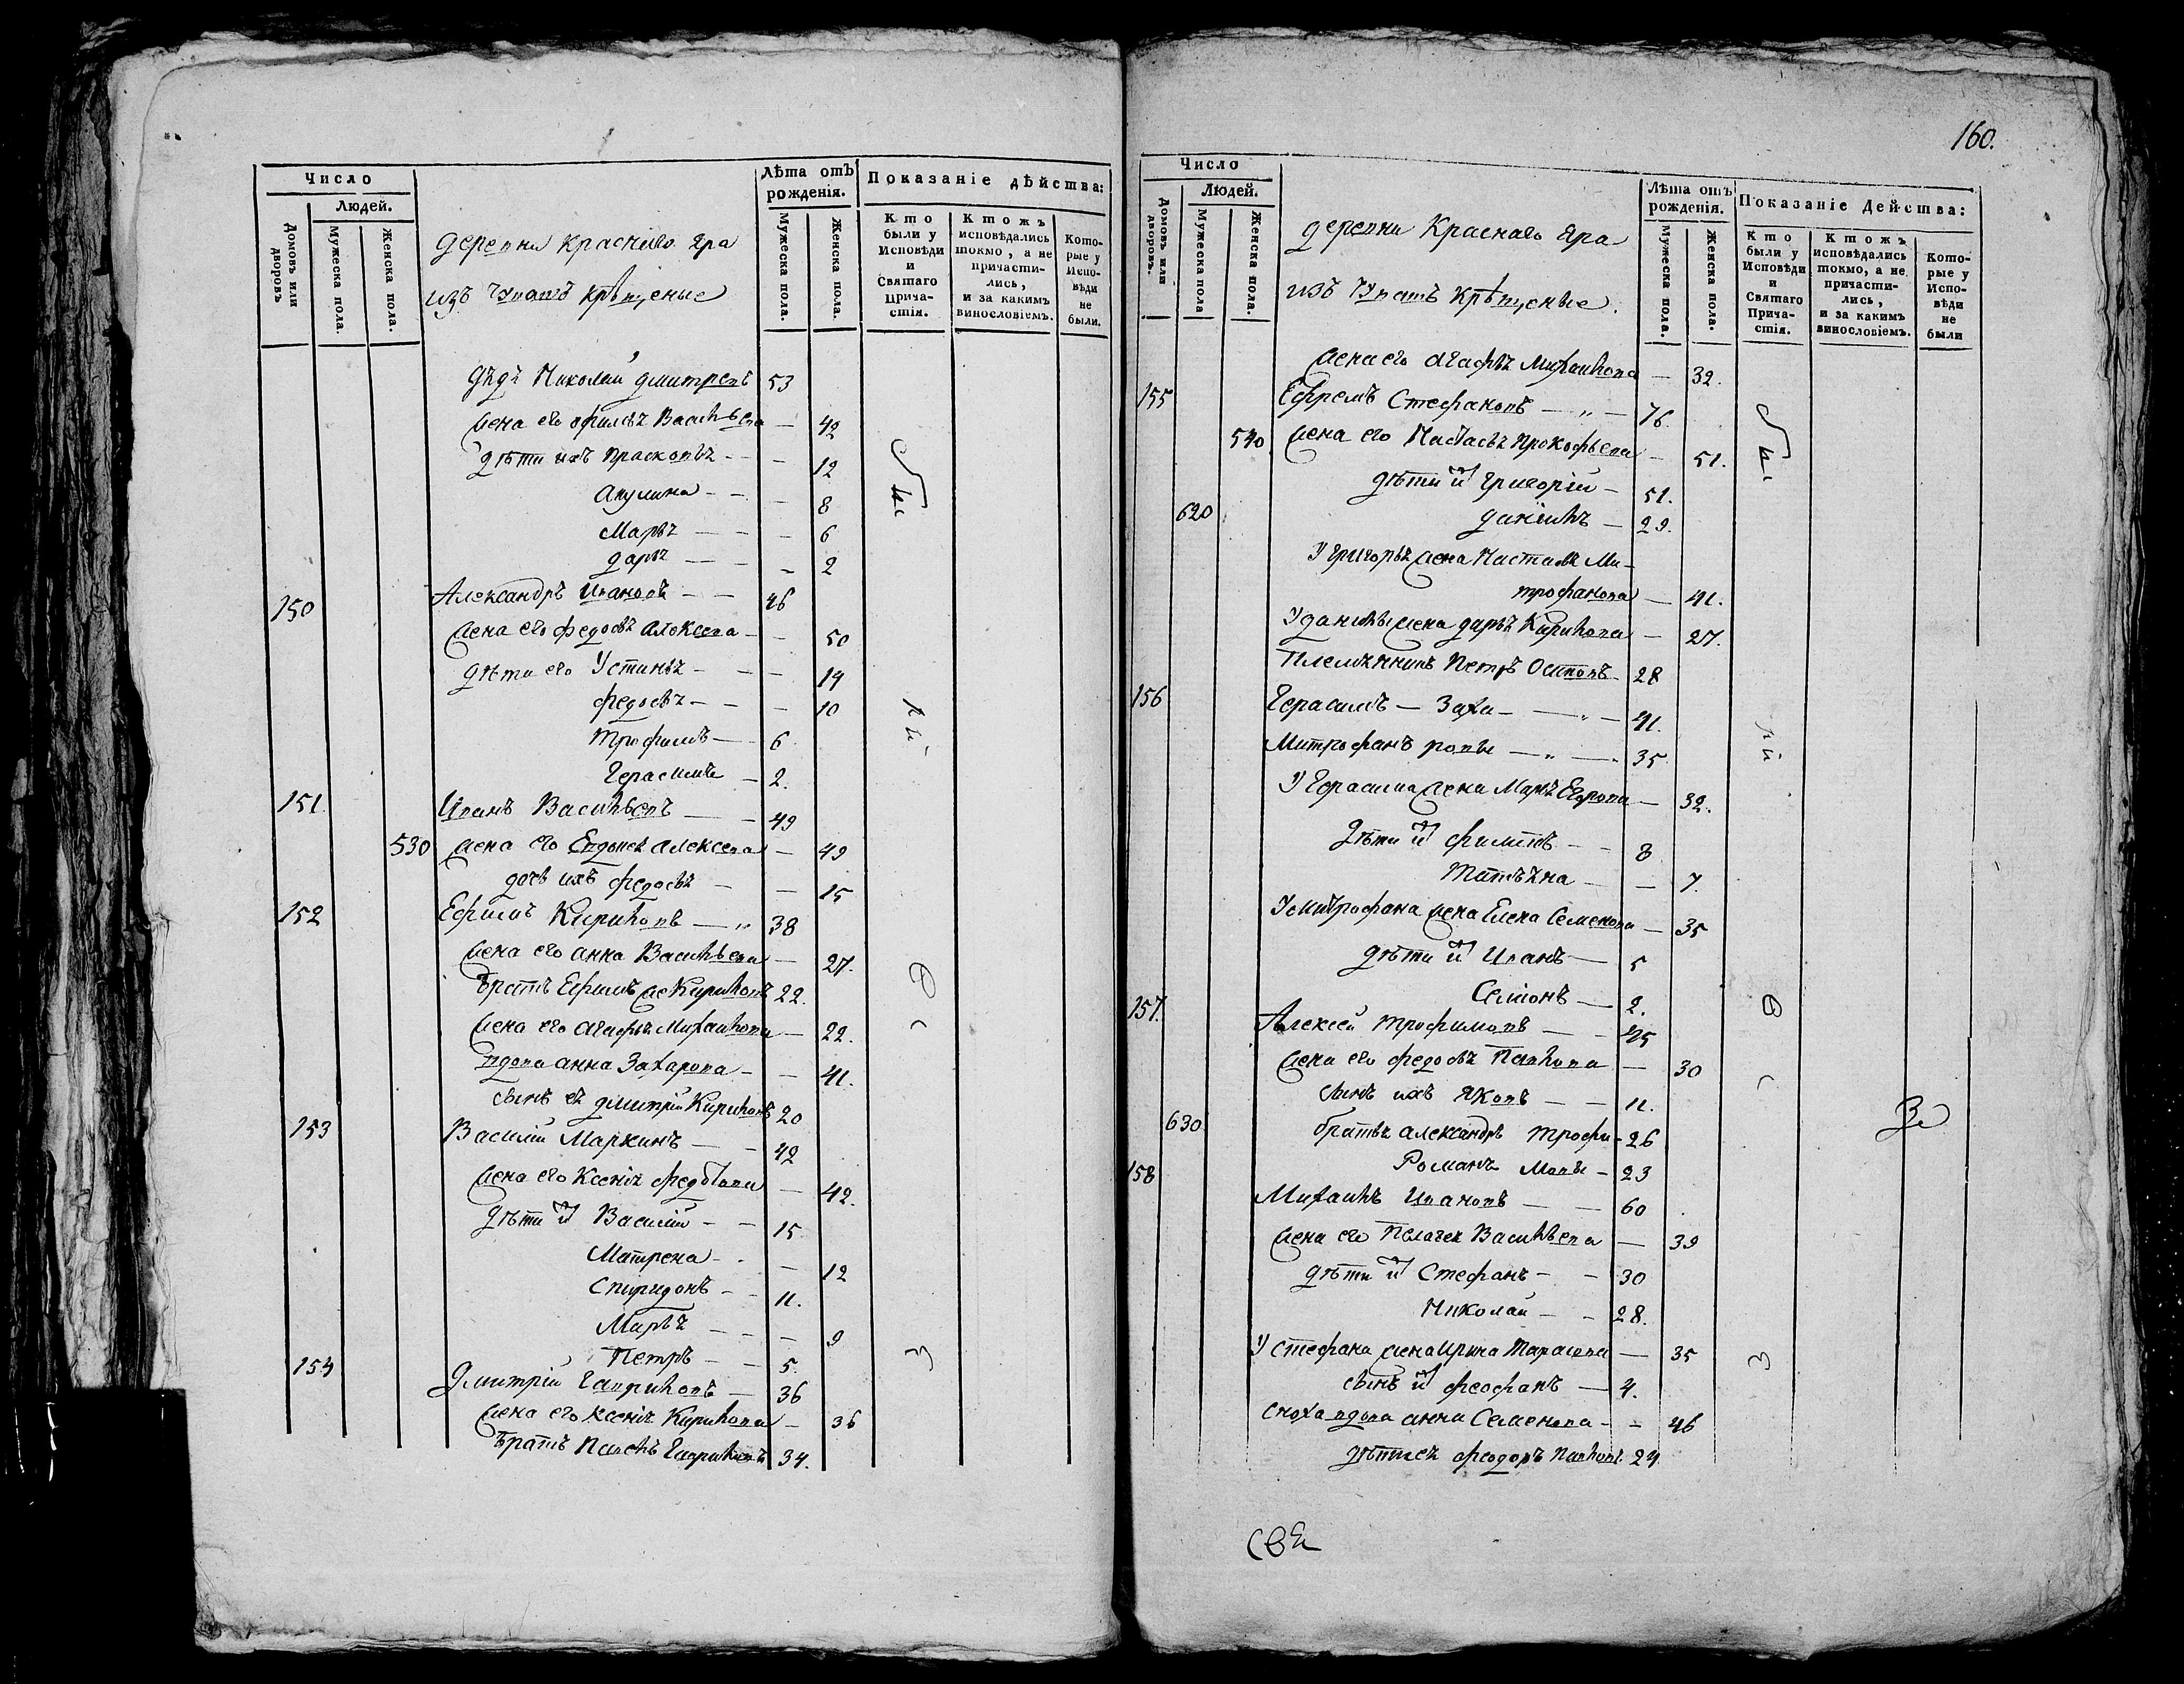 Число
Людей.
Домовъ или дворовъ
Мужеска пола.
Женска пола.
деревни Краснаго Яра
изъ Чувашъ крѣщеные
Лѣта отъ рожденія.
Мужеска пола.
Женска пола.
Показаніе дѣйства:
Кто были у Исповѣди и Святаго Прича-стія.
Ктожъ исповѣдались токмо, а не причасти-лись, и за какимъ винословіемъ.
Кото-рые у Испо-вѣди не были.
дядя Николай Дмитревъ 53
жена его Васильева — 42
дѣти ихъ Прасковья — 12
Акулина — 8
Марья — 6
Дарья — 2
150 Александръ Ивановъ — 46
жена его Федосья Алексеева — 50
дѣти его Устинья — 14
Федосья — 10
Трофимъ — 6
Герасимъ — 2.
151 Иванъ Васильевъ — 49
530 жена его Евдокея Алексеева — 49
дочь ихъ Федосья — 15
152 Ефимъ Кириловъ — 38
жена его Анна Васильева — 27.
братъ Ефимъ же Кириловъ 22.
жена его Агафья Михаилова — 22.
вдова Анна Захарова — 41.
сынъ ея Дмитрій Кириловъ 20
153 Василий Маркинъ — 42
жена его Ксенія — 42.
дѣти их Василій — 15
Матрена — 12
Спиридонъ — 11.
Марья — 9
Петръ — 5.
154 Дмитрій Гавриловъ — 36
жена его Ксенія Кирилова — 36
братъ Павелъ Гавриловъ 34.
160.
Число
Людей.
Домовъ или дворовъ.
Мужеска пола
Женска пола.
деревни Краснаго Яра
изъ Чувашъ крѣщеные.
Лѣта отъ рожденія.
Мужеска пола.
Женска пола.
Показаніе Действа:
Кто были у Исповѣди и Святаго Прича-стія.
Ктожъ исповѣдались токмо, а не причасти-лись, и за какимъ винословіемъ.
Кото-рые у Испо-вѣди не были
жена его Агафья Михаилова — 32.
155 Ефремъ Стефановъ — „ — 76.
540 жена его Настасья Прокофьева — 51.
дѣти их Григорій — 51.
620 Даніилъ — 29.
У Григорья жена Настасья Ми-
трофанова — 41.
У Данилы жена Дарья Кирилова — 27.
Племянникъ Петръ Осиповъ 28
156 Герасимъ — Заха — „ — 41.
Митрофанъ ровы — „ — 35
У Герасима жена Марья Егорова — 32.
дѣти их Филипъ — 8
Татьяна — 7.
У Митрофана жена Елена Семенова — 35
дѣти их Иванъ — 5
Семіонъ — 2.
157. Алексей Трофимовъ — 45
жена его Федосья Павлова — 30
сынъ ихъ Яковъ — 11.
630 братья Александръ Трофи- 26
Романъ мовы — 23
158 Михаилъ Ивановъ — 60
жена его Пелагея Васильева — 39
дѣти их Стефанъ — 30
Николай — 28.
У Стефана жена Ирина Тарасова — 35
сынъ их Феофанъ — 4.
сноха вдова Анна Семенова — 46
Феодоръ Павловъ 24